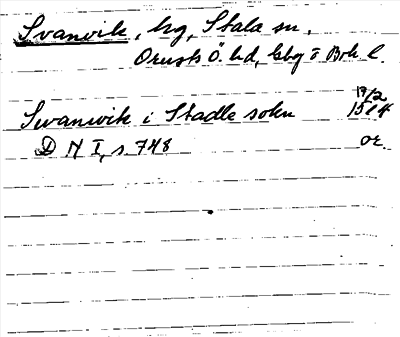 Svanvik, hg, Stala sn.
Orusts Ö. hd, Gbg o Boh l.
Swanwik i Stadle sokn 19/2 1514
D N I, s. 748 or.